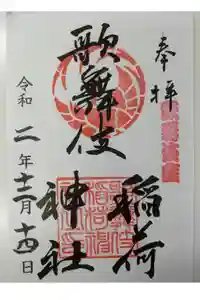 奉拝
歌舞伎
稲荷
神社
令和二年十二月十四日